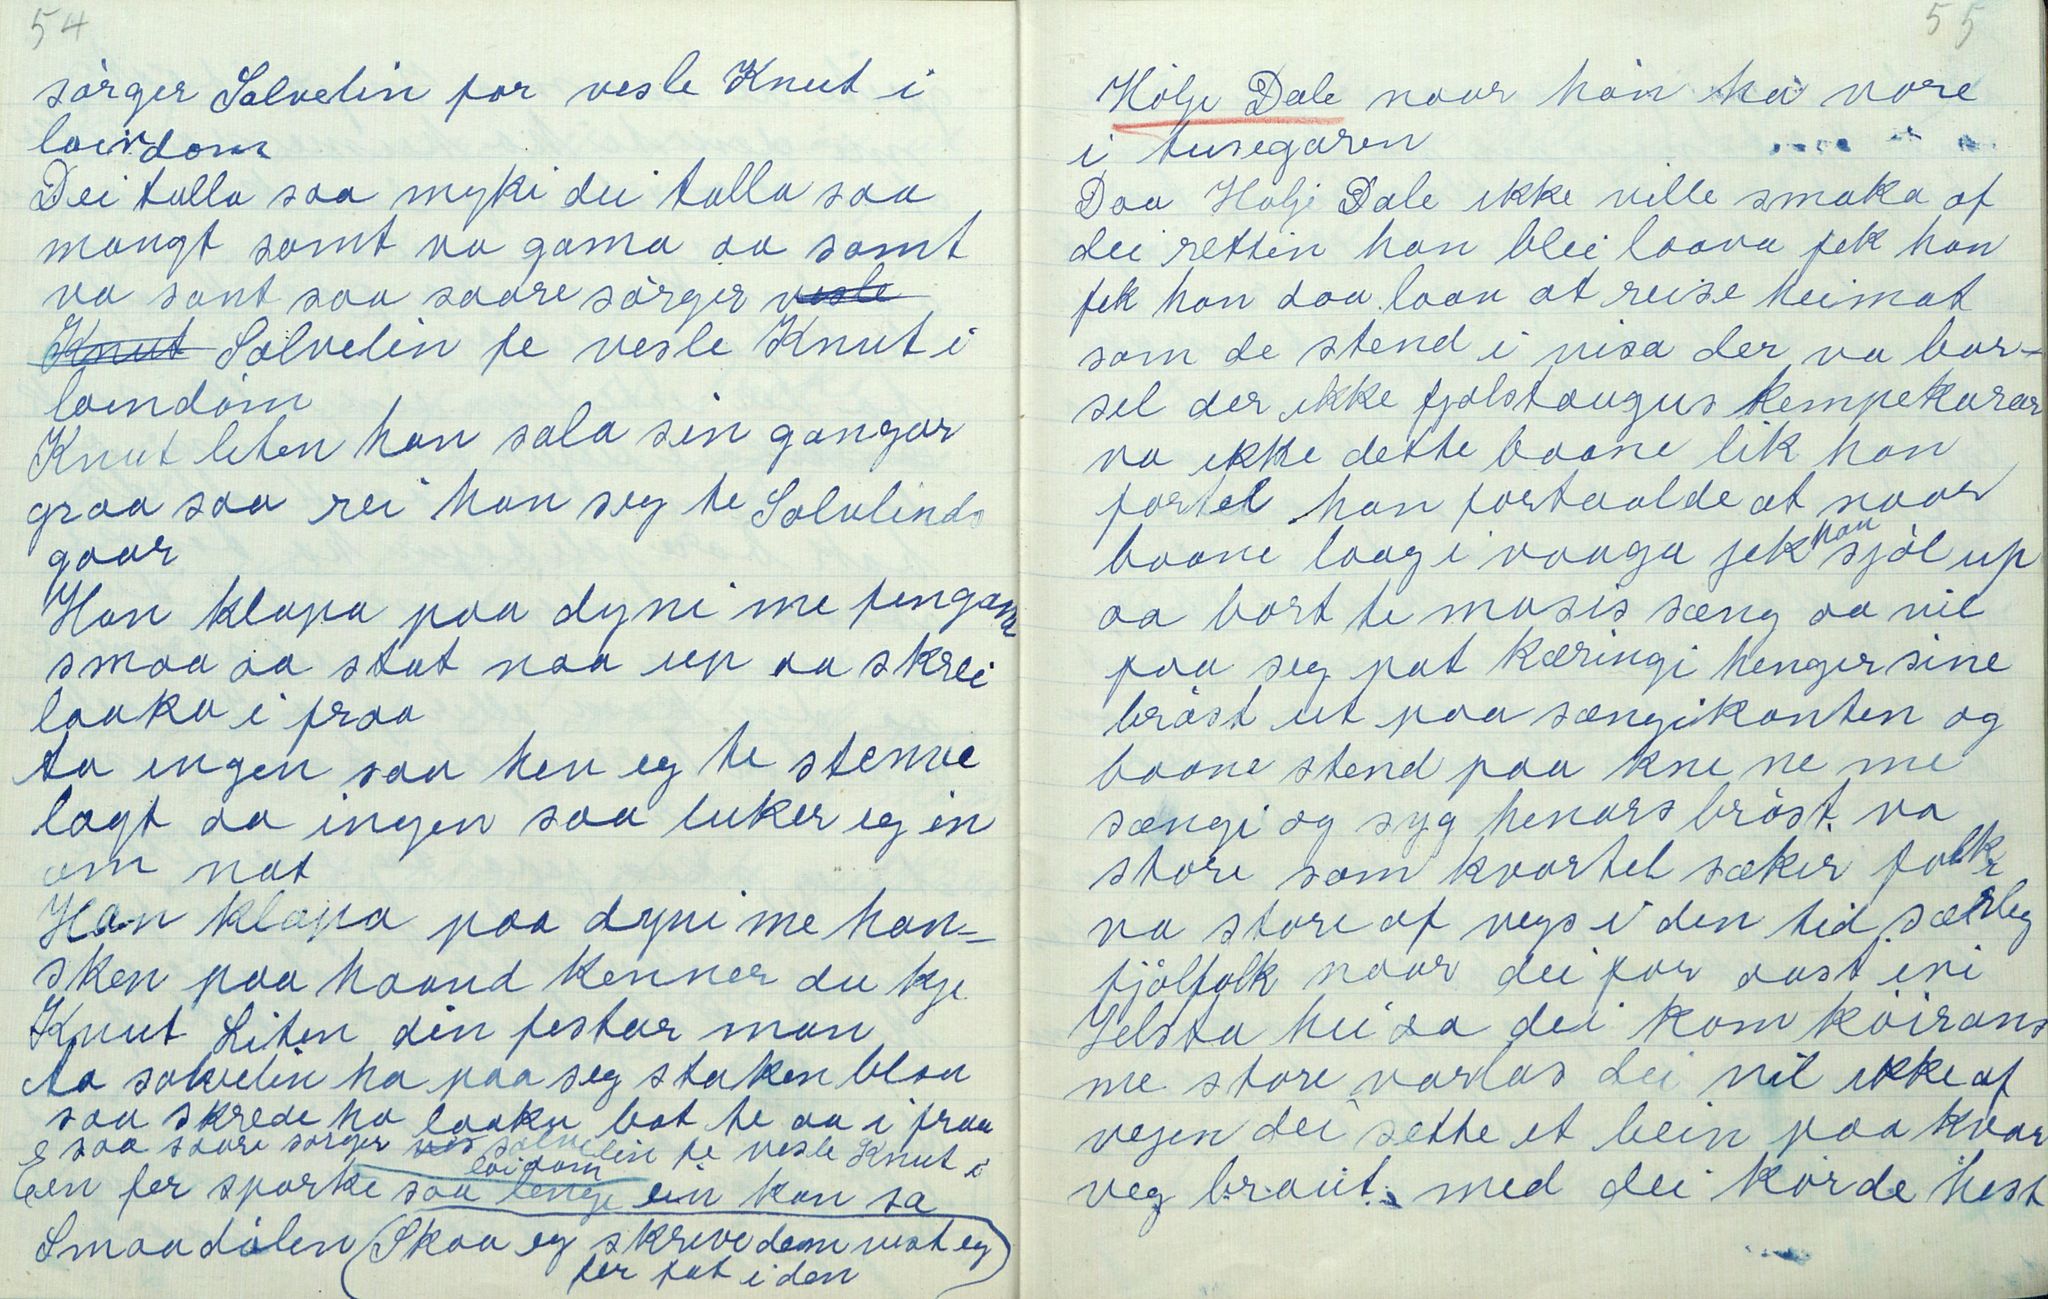 54
sörger Solvelin for vesle Knut i
loindom
Dei talla saa myki dei talla saa
mangt somt va gama aa somt
va sant saa saare sörger vesle
Knut Solvelin fe vesle Knut i
loindom
Knut liten han sala sin gangar
graa saa rei han seg te Solvlinds
gaar
Han klapa paa dyni me fingann
smaa aa stat naa up aa skrei
laaka i fraa
ta ingen saa hev eg te stemne
lagt aa ingen saa luker eg in
om nat
Han klapa paa dyni me han-
sken paa haand kenner du kje
Knut Liten din festar man
ta solvelin ha paa seg staken blaa
saa skrede ho laaka bot te aa i fraa
saa saare sörger ves solvelin fe vesle Knut i
loidom
Een fer sparke saa lenge ein kan sa
Smaadölen (Skaa eg skrive dem vist eg
fer tat i den
55
Hölje Dale naar han ha vore
i tusegaren
Daa Holje Dale ikke ville smaka af
dei rettin han blei laava fek han
fek han daa laav at reise heimat
som de stend i visa der va bar-
sel der ikke fjolstaugus kempekarar
va ikke dette baane lik han
fortel han fortaalde at naar
baane laag i vaaga jek han sjöl up
aa bort te masis sæng aa vil
paa seg pat kæringi henger sine
bröst ut paa sængikanten og
baane stend paa kne ne me
sængi og syg henars bröst va
store som kvartel sæker folk
va store af vegs i den tid særleg
fjölfolk naar dei for aust ivi
Jelsta hei aa dei kom köirans
me store varlas dei vil ikke af
vegen dei sette et bein paa kvar
veg braut. med dei körde hest